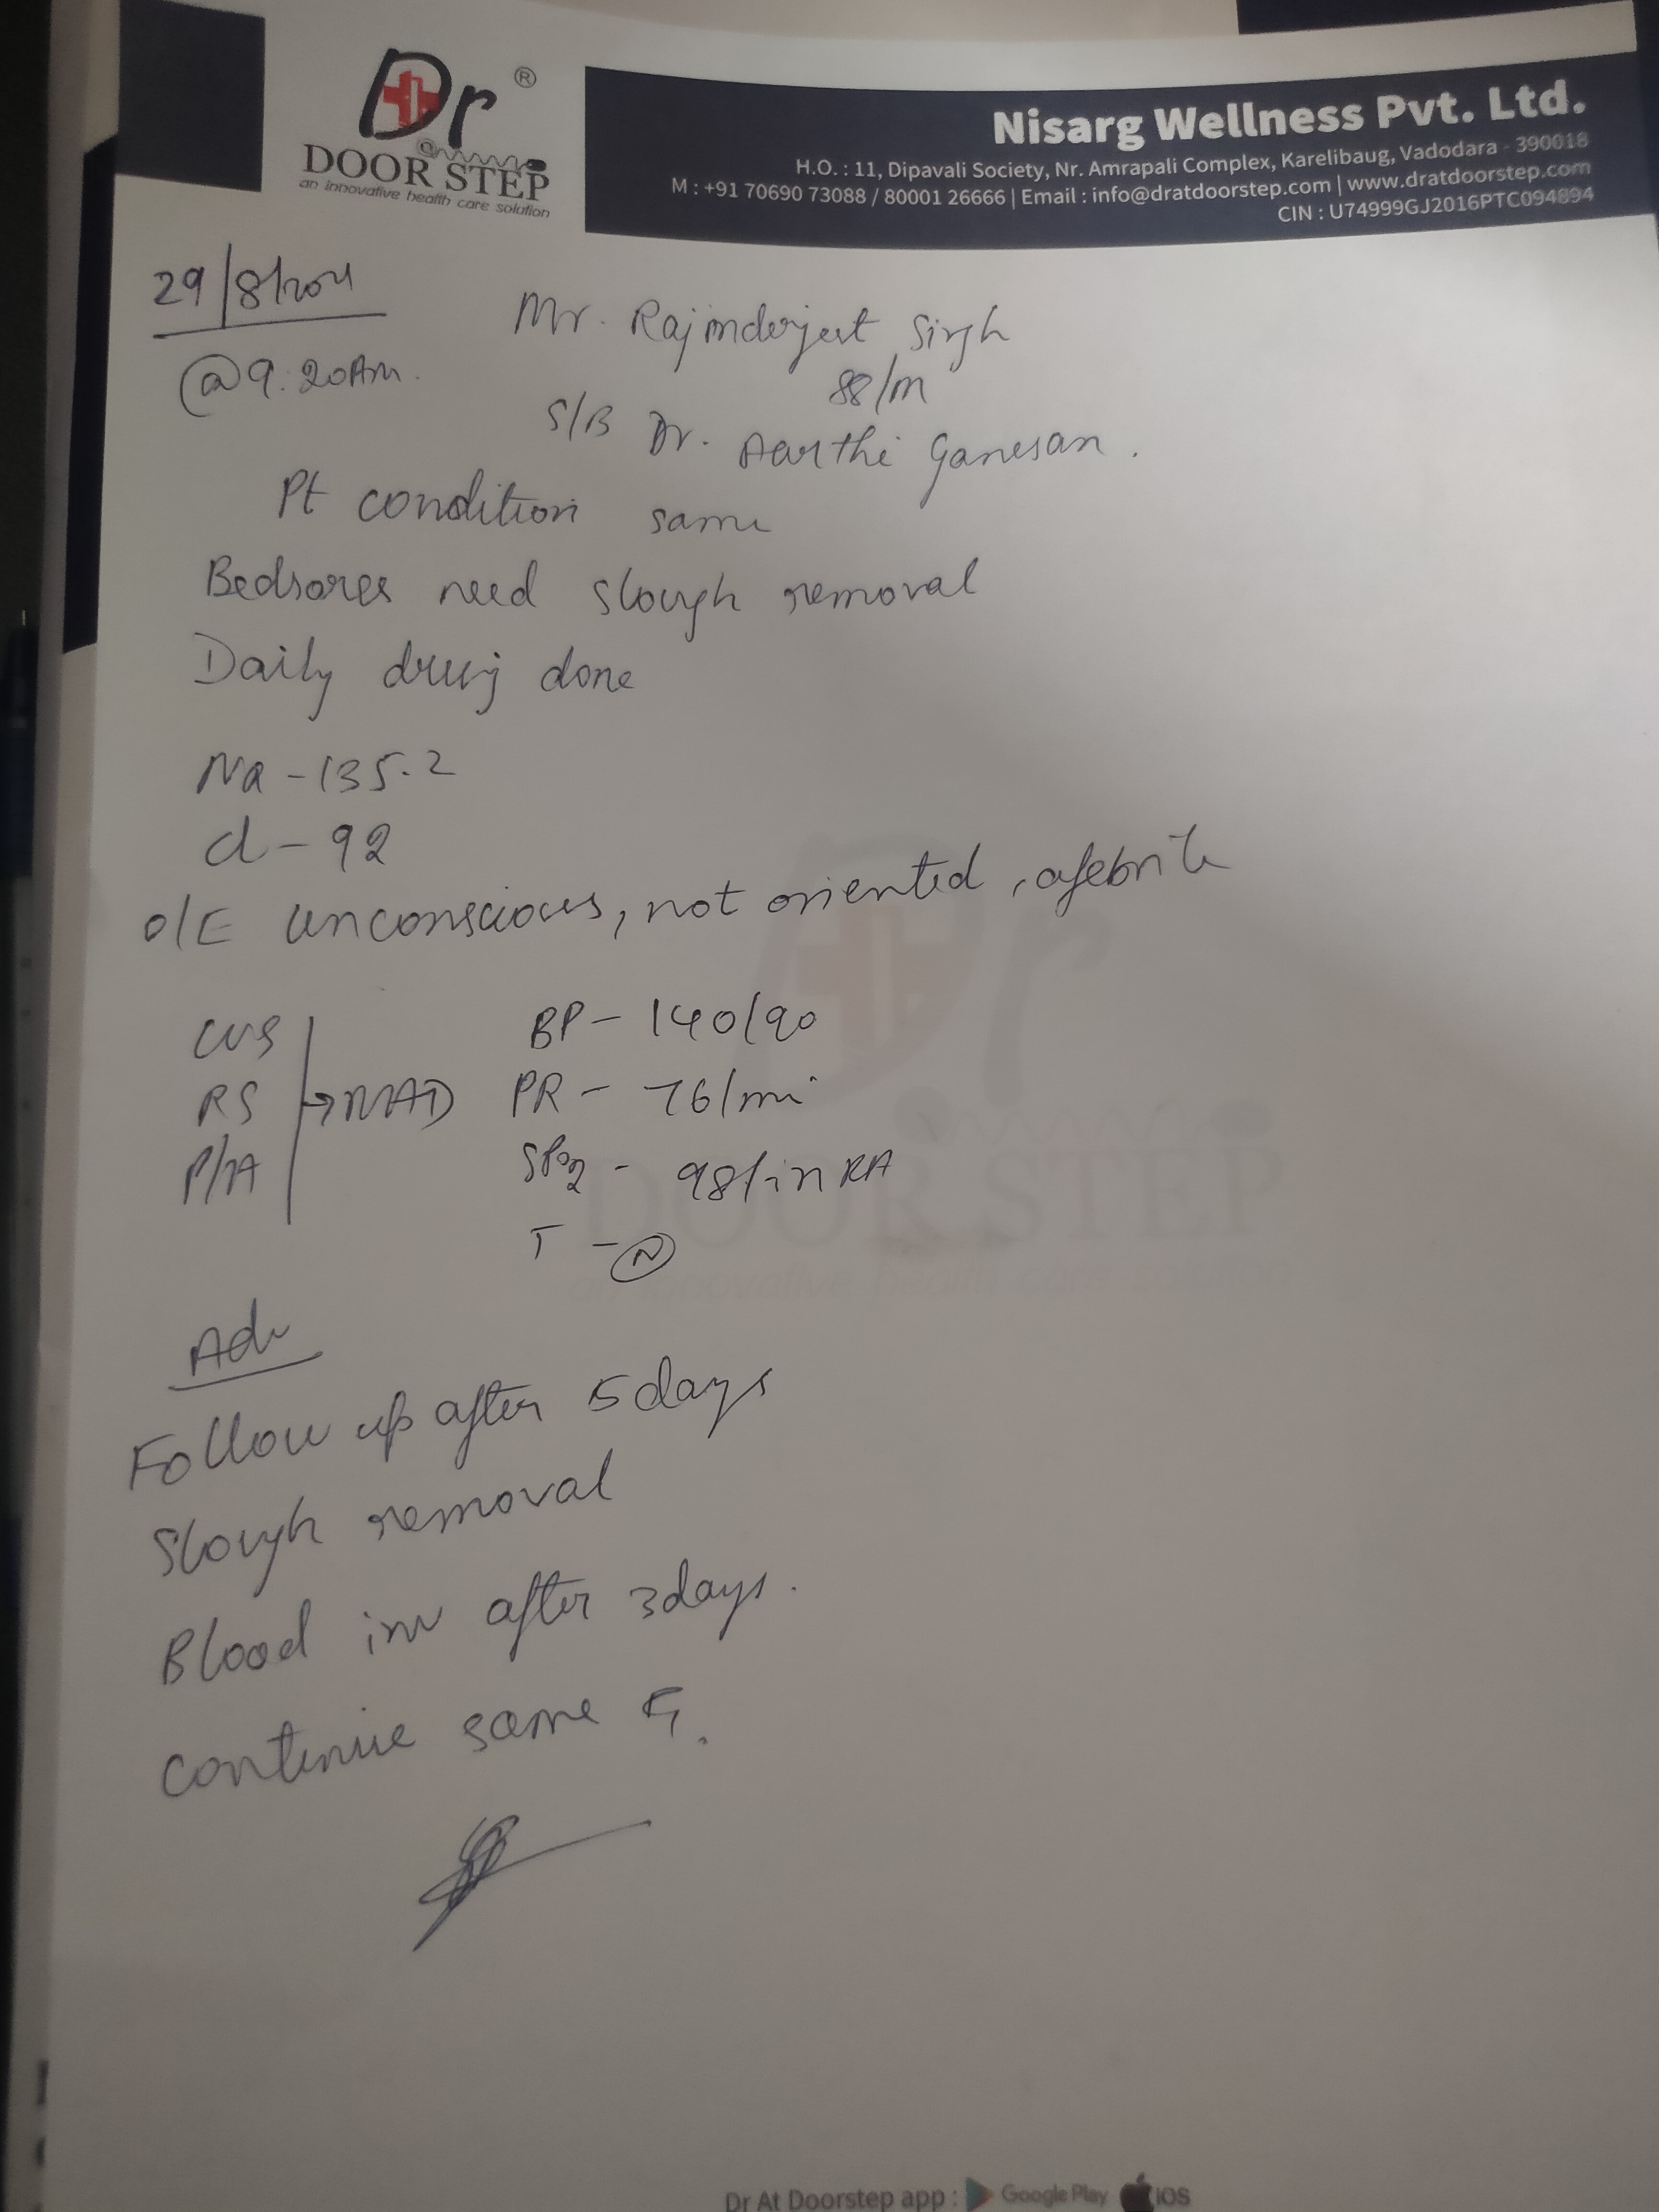 Dr ®
@
DOOR STEP
an innovative health care solution
Nisarg Wellness Pvt. Ltd.
H.O. : 11, Dipavali Society, Nr. Amrapali Complex, Karelibaug, Vadodara - 390018
M : +91 70690 73088 / 80001 26666 | Email : info@dratdoorstep.com | www.dratdoorstep.com
CIN : U74999GJ2016PTC094894
29/8/
@ 9.20 Am.
Mr. Rajinderjeet Singh
88/M
S/B Dr. Aarthi Ganesan.
Pt condition same
Bedsores need slough removal
Daily done
Na - 135.2
Cl - 92
O/E unconscious, not oriented, afebrile
CVS
RS → NAD
P/A
BP - 140/90
PR - 76/min
SPO2 - 98% in RA
T - N
Adv
Follow up after 5 days
Slough removal
Blood inv after 3 days.
Continue same
DOOR STEP
an innovative health care solution
Dr At Doorstep app : Google Play iOS